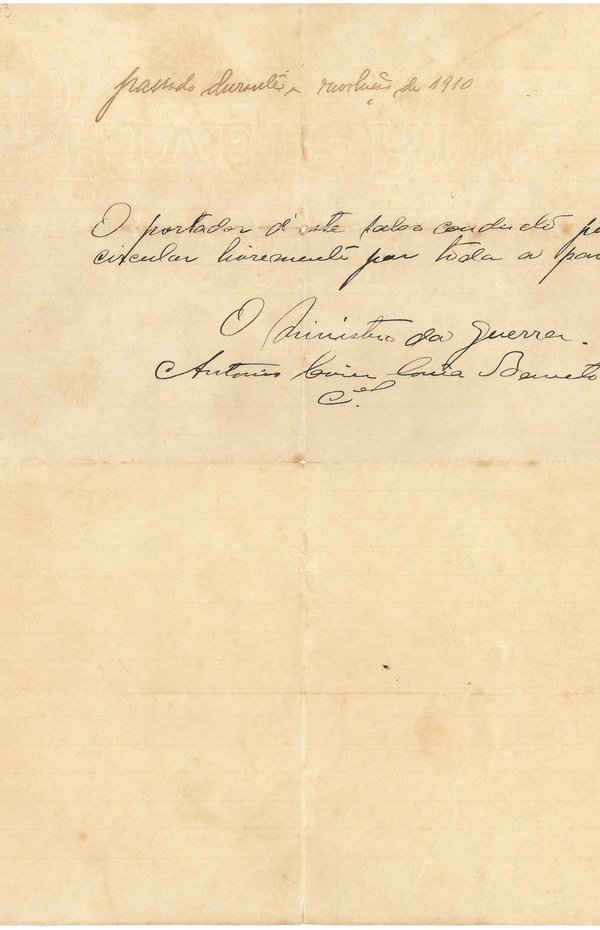 passado durante a revolução de 1910
O portador d'este salvo conducto p
circular livremente por toda a par
O Ministro da Guerra.
Antonio Xavier Correia Barreto
C.el